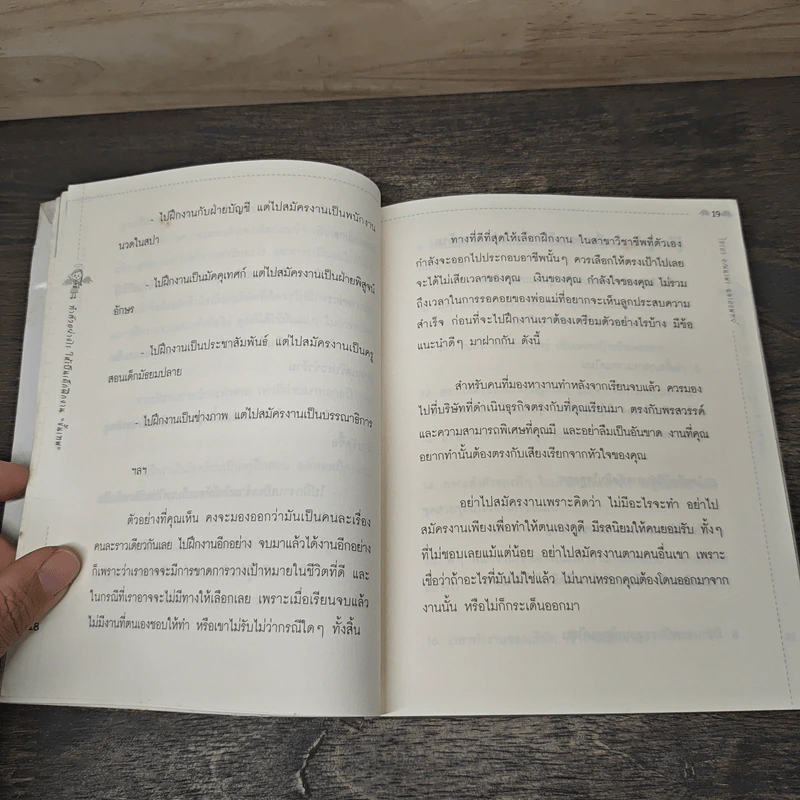 - ไปฝึกงานกับฝ่ายบัญชี แต่ไปสมัครงานเป็นพนักงาน
นวดในสปา
- ไปฝึกงานเป็นมัคคุเทศก์ แต่ไปสมัครงานเป็นฝ่ายพิสูจน์
อักษร
- ไปฝึกงานเป็นประชาสัมพันธ์ แต่ไปสมัครงานเป็นครู
สอนเด็กมัธยมปลาย
- ไปฝึกงานเป็นช่างภาพ แต่ไปสมัครงานเป็นบรรณาธิการ
ฯลฯ
ตัวอย่างที่คุณเห็น คงจะมองออกว่ามันเป็นคนละเรื่อง
คนละราวเดียวกันเลย ไปฝึกงานอีกอย่าง จบมาแล้วได้งานอีกอย่าง
ก็เพราะว่าเราอาจจะมีการขาดการวางเป้าหมายในชีวิตที่ดี และ
ในกรณีที่เราอาจจะไม่มีทางให้เลือกเลย เพราะเมื่อเรียนจบแล้ว
ไม่มีงานที่ตนเองชอบให้ทำ หรือเขาไม่รับไม่ว่ากรณีใดๆ ทั้งสิ้น
18
19
ทางที่ดีที่สุดให้เลือกฝึกงาน ในสาขาวิชาชีพที่ตัวเอง
กำลังจะออกไปประกอบอาชีพนั้นๆ ควรเลือกให้ตรงเป้าไปเลย
จะได้ไม่เสียเวลาของคุณ เงินของคุณ กำลังใจของคุณ ไม่รวม
ถึงเวลาในการรอคอยของพ่อแม่ที่อยากจะเห็นลูกประสบความ
สำเร็จ ก่อนที่จะไปฝึกงานเราต้องเตรียมตัวอย่างไรบ้าง มีข้อ
แนะนำดีๆ มาฝากกัน ดังนี้
สำหรับคนที่มองหางานทำหลังจากเรียนจบแล้ว ควรมอง
ไปที่บริษัทที่ดำเนินธุรกิจตรงกับที่คุณเรียนมา ตรงกับพรสวรรค์
และความสามารถพิเศษที่คุณมี และอย่าลืมเป็นอันขาด งานที่คุณ
อยากทำนั้นต้องตรงกับเสียงเรียกจากหัวใจของคุณ
อย่าไปสมัครงานเพราะคิดว่า ไม่มีอะไรจะทำ อย่าไป
สมัครงานเพียงเพื่อทำให้ตนเองดูดี มีรสนิยมให้คนยอมรับ ทั้งๆ
ที่ไม่ชอบเลยแม้แต่น้อย อย่าไปสมัครงานตามคนอื่นเขา เพราะ
เชื่อว่าถ้าอะไรที่มันไม่ใช่แล้ว ไม่นานหรอกคุณต้องโดนออกมาจาก
งานนั้น หรือไม่ก็กระเด็นออกมา